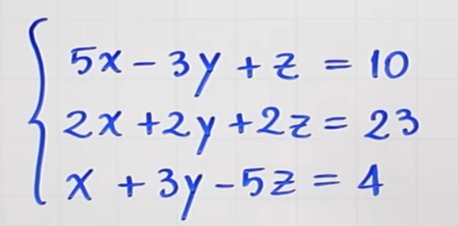 5x - 3y + z = 10
2x + 2y + 2z = 23
x + 3y - 5z = 4